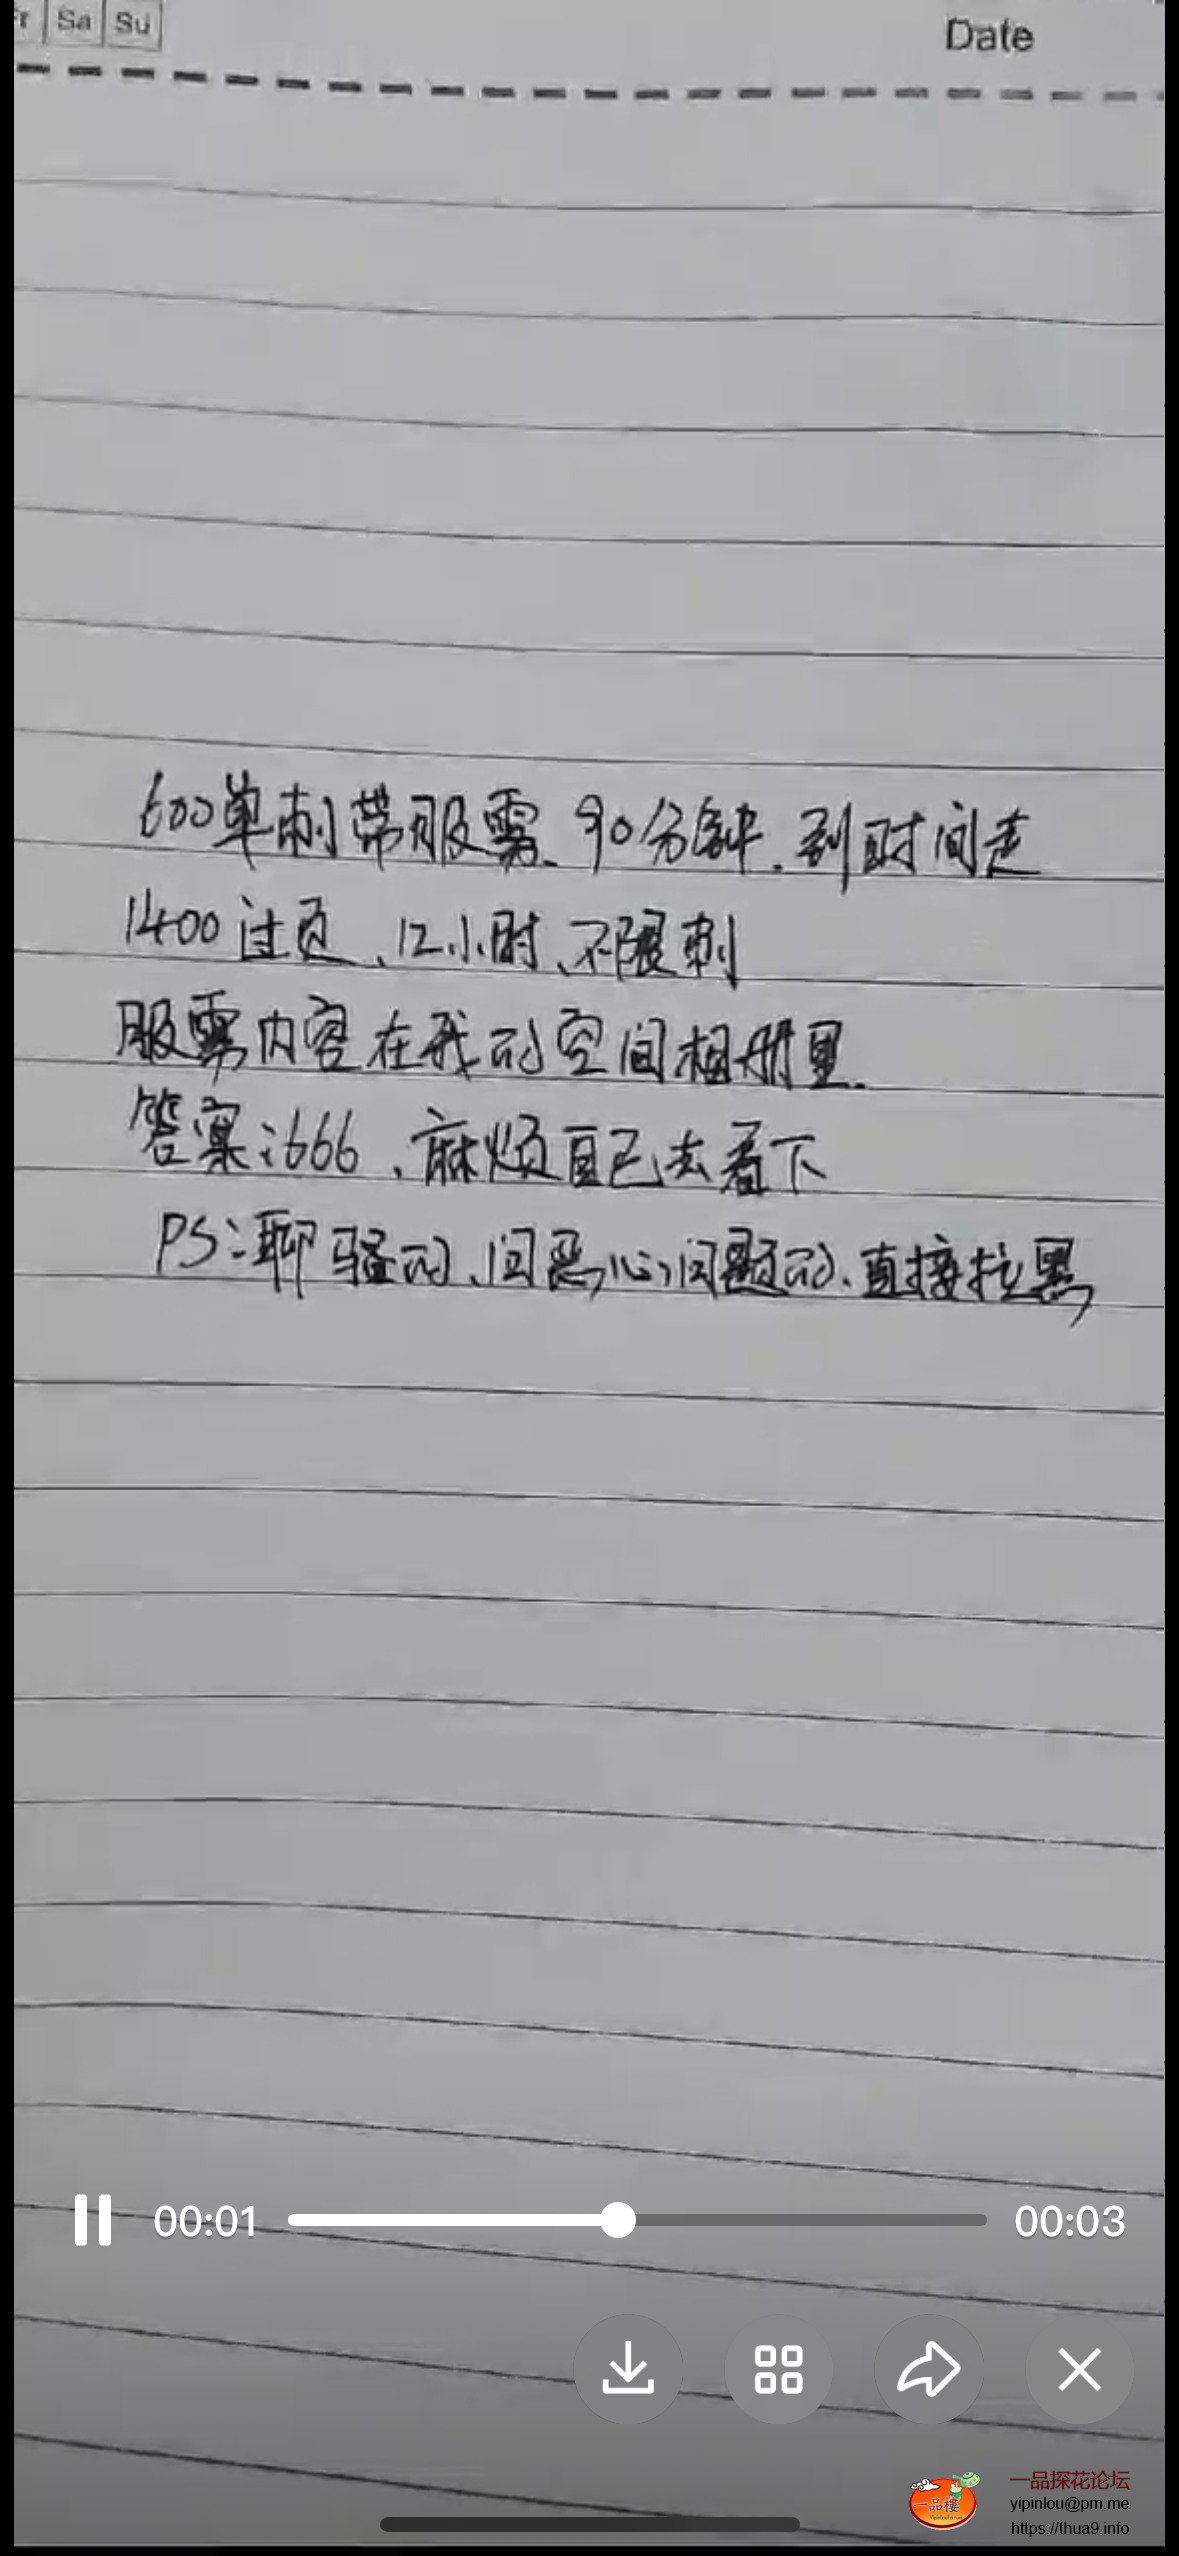 Fr Sa Su Date
600单刺带服雾、90分钟.到时间走
1400过夜、12小时、不限刺
服雾内容在我的空间相册里.
答案:666、麻烦自己去看下
PS:聊骚的、问恶心问题的、直接拉黑
00:01 00:03
一品楼
一品探花论坛
yipinlou@pm.me
https://thua9.info